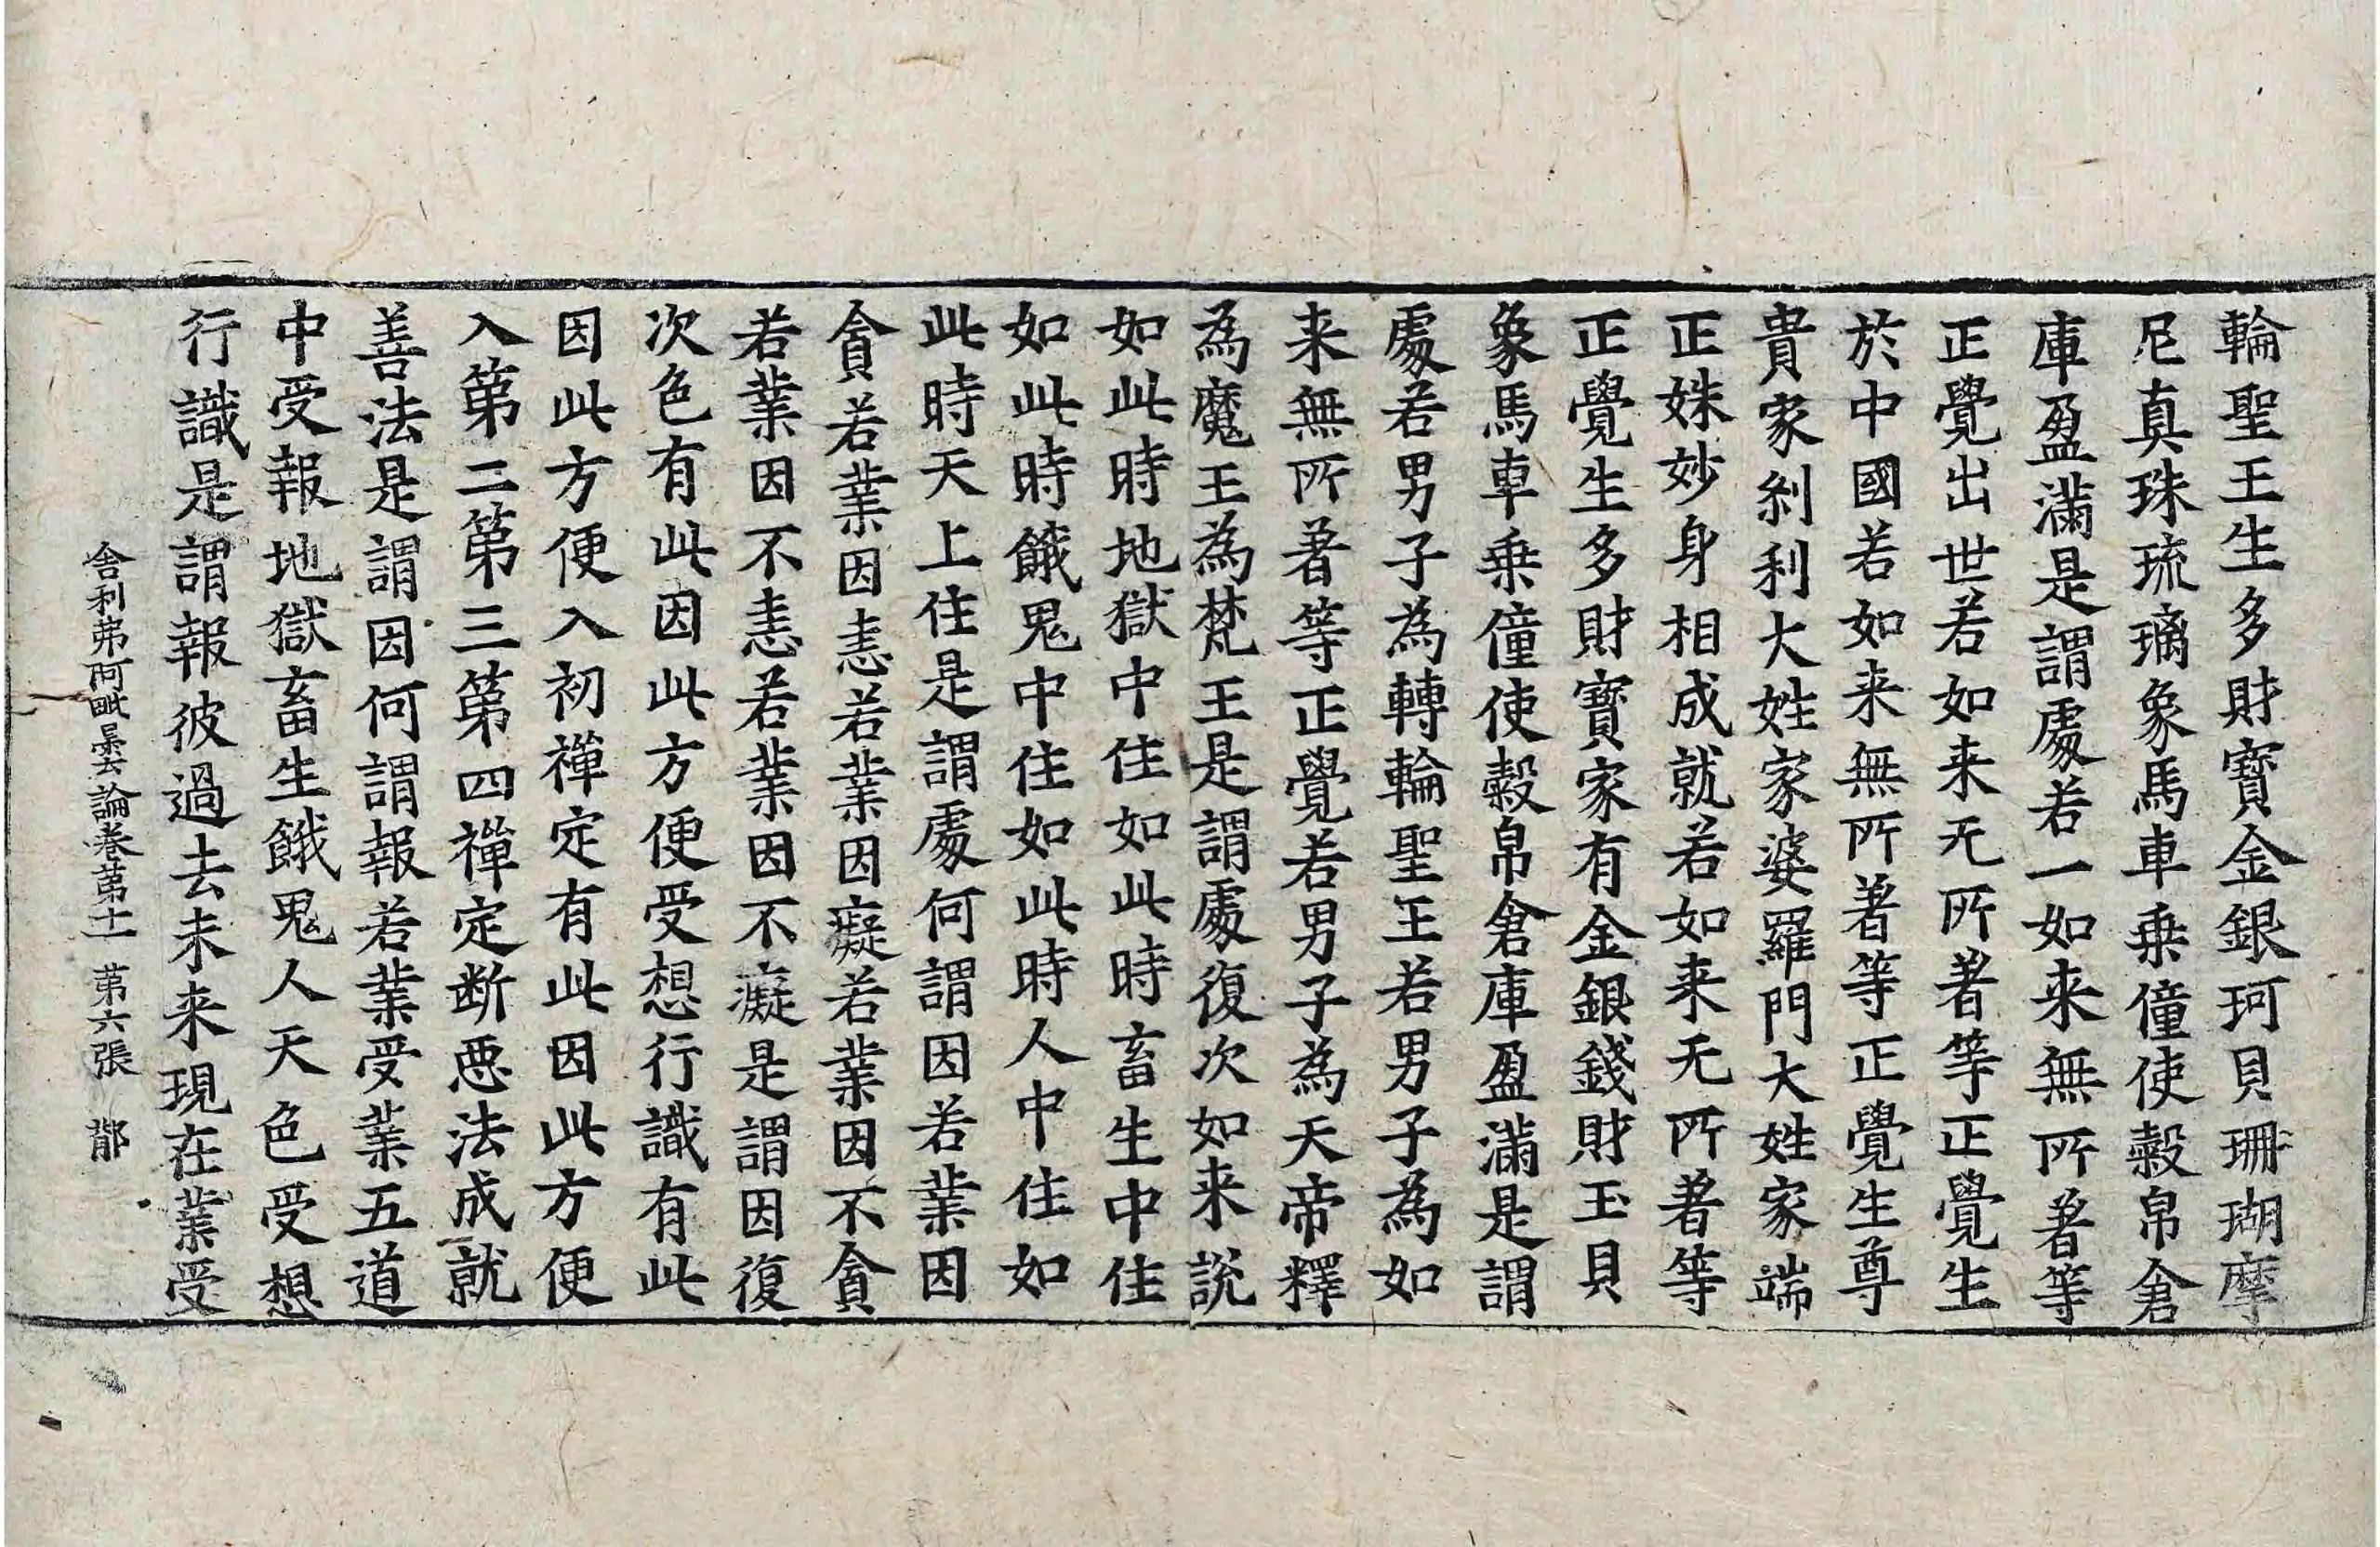 輪聖王生多財寶金銀珂貝珊瑚摩
尼真珠琉璃象馬車乗僮使穀帛倉
庫盈滿是謂處若一如来無所著等
正覺出世若如来无所著等正覺生
於中國若如来無所著等正覺生尊
貴家剎利大姓家婆羅門大姓家端
正姝妙身相成就若如来无所著等
正覺生多財寶家有金銀錢財玉貝
象馬車乗僮使穀帛倉庫盈滿是謂
處若男子為轉輪聖王若男子為如
来無所著等正覺若男子為天帝釋
為魔王為梵王是謂處復次如来説
如此時地獄中住如此時畜生中住
如此時餓鬼中住如此時人中住如
此時天上住是謂處何謂因若業因
貪若業因恚若業因癡若業因不貪
若業因不恚若業因不癡是謂因復
次色有此因此方便受想行識有此
因此方便入初禪定有此因此方便
入第二第三第四禪定断惡法成就
善法是謂因何謂報若業受業五道
中受報地獄畜生餓鬼人天色受想
行識是謂報彼過去未来現在業受
舍利弗阿毗曇論卷第十一 第六張 鄑